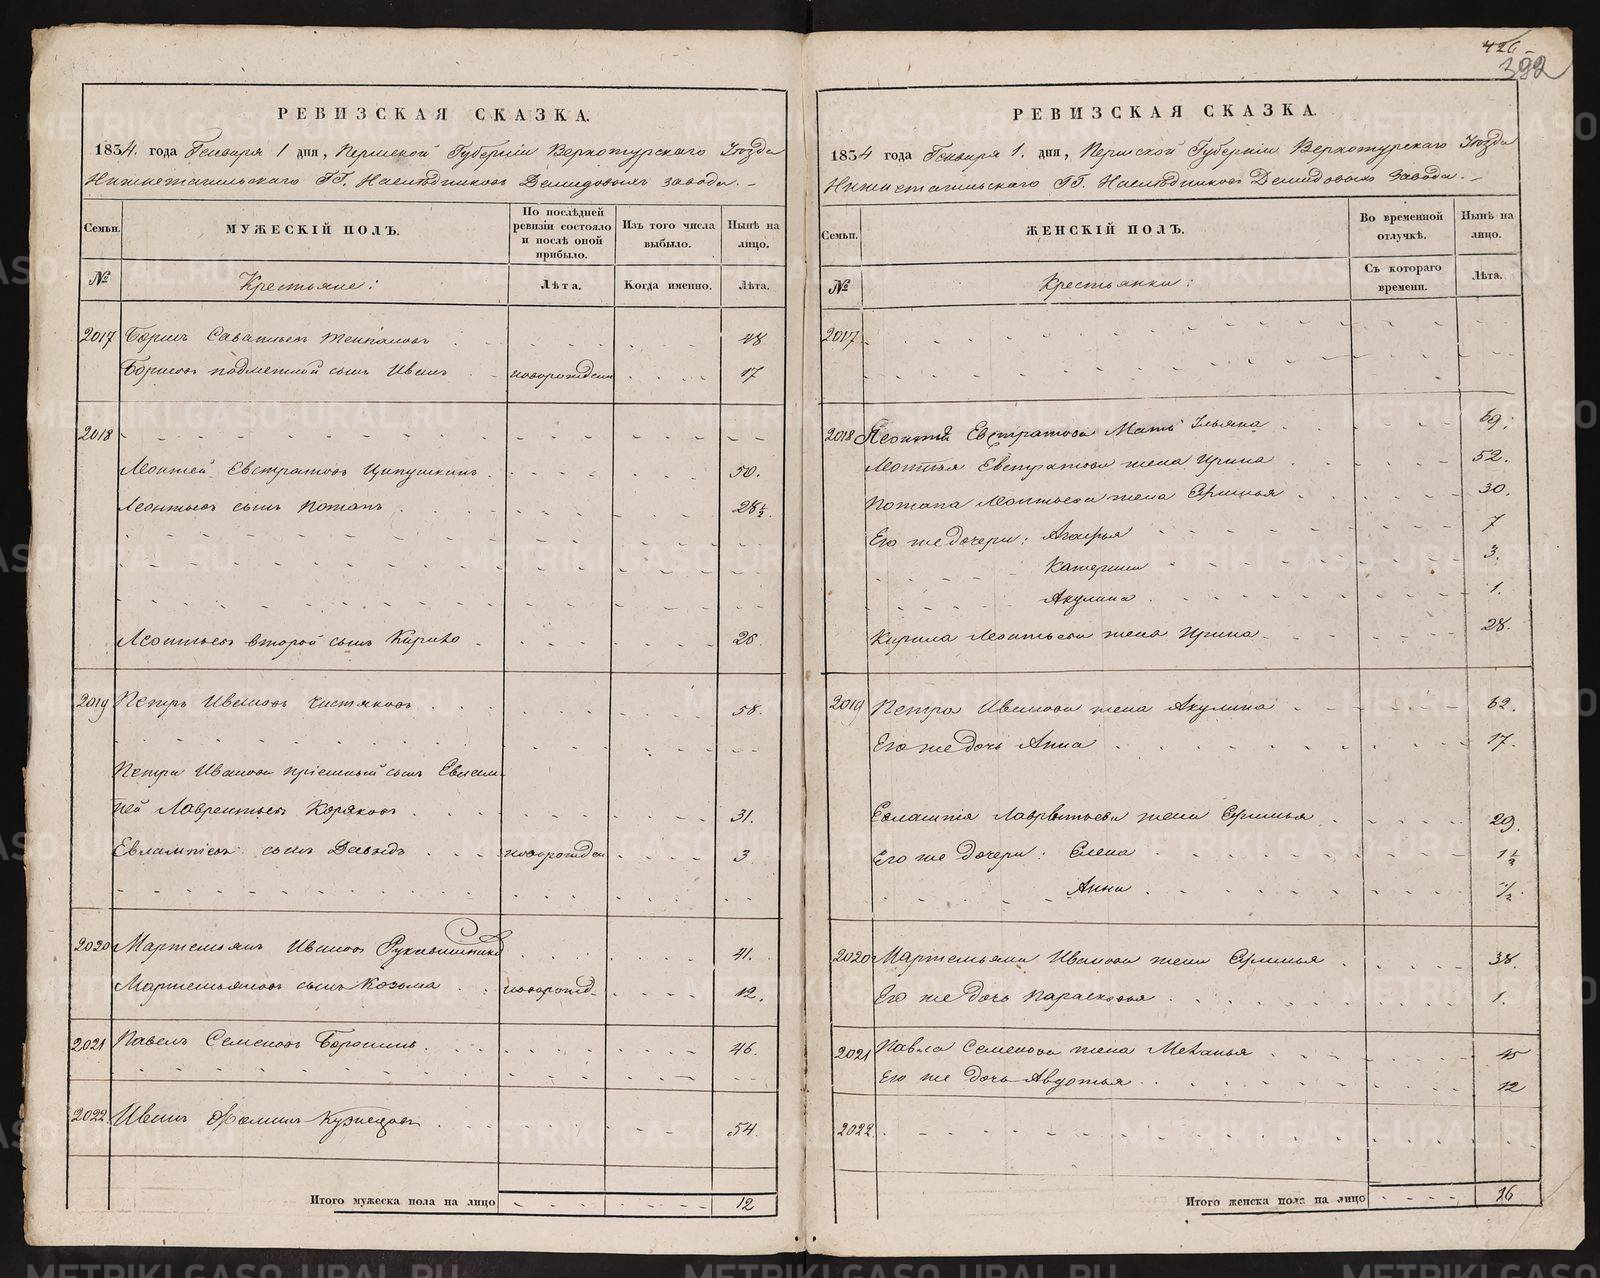 426
392
РЕВИЗСКАЯ СКАЗКА.
1834. года Генваря 1 дня, Пермской Губерніи Верхотурскаго Уѣзда
Нижнетагильскаго ГГ. Наслѣдниковъ Демидовыхъ завода.
Семьи.
МУЖЕСКІЙ ПОЛЪ.
По послѣдней ревизіи состояло и послѣ оной прибыло.
Изъ того числа выбыло.
Нынѣ на лицо.
№
Крестьяне:
Лѣта.
Когда именно.
Лѣта.
2017 Борисъ Саватьевъ 48
Борисовъ подметной сынъ Иванъ новорожден 17
2018
Леонтей Евстратовъ Ципушкинъ 50.
Леонтьевъ сынъ Потапъ 28½.
Леонтьевъ второй сынъ Кирило 26.
2019 Петръ Ивановъ Чистяковъ 58.
Петра Иванова пріемный сынъ Евлам-
пей Лаврентьевъ Коряковъ 31.
Евлампіевъ сынъ Давыдъ новорожден 3
2020 Мартемьянъ Ивановъ Рукавишниковъ 41.
Мартемьяновъ сынъ Козьма новорожд. 12.
2021 Павелъ Семеновъ 46.
2022 Иванъ Ѳоминъ Кузнецовъ 54.
Итого мужеска пола на лицо 12
РЕВИЗСКАЯ СКАЗКА.
1834 года Генваря 1. дня, Пермской Губерніи Верхотурскаго Уѣзда
Нижнетагильскаго ГГ. Наслѣдниковъ Демидовыхъ Завода.
Семьи.
ЖЕНСКІЙ ПОЛЪ.
Во временной отлучкѣ.
Нынѣ на лицо.
№
Крестьянки:
Съ котораго времени.
Лѣта.
2017
2018 Леонтія Евстратова Мать Ульяна 69.
Леонтья Евстратова жена Ирина 52.
Потапа Леонтьева жена Ефимья 30.
Его же дочери: Агафья 7
Катерина 3.
Акулина 1.
Кирила Леонтьева жена Ирина 28.
2019 Петра Иванова жена Акулина 62.
Его же дочь Анна 17.
Евлампія Лаврентьева жена Ефимья 29.
Его же дочери: Елена 1½
Анна ½.
2020 Мартемьяна Иванова жена Ефимья 38.
Его же дочь Парасковья 1.
2021 Павла Семенова жена Меланья 45
Его же дочь Авдотья 12
2022.
Итого женска пола на лицо 16
METRIKI.GASO-URAL.RU